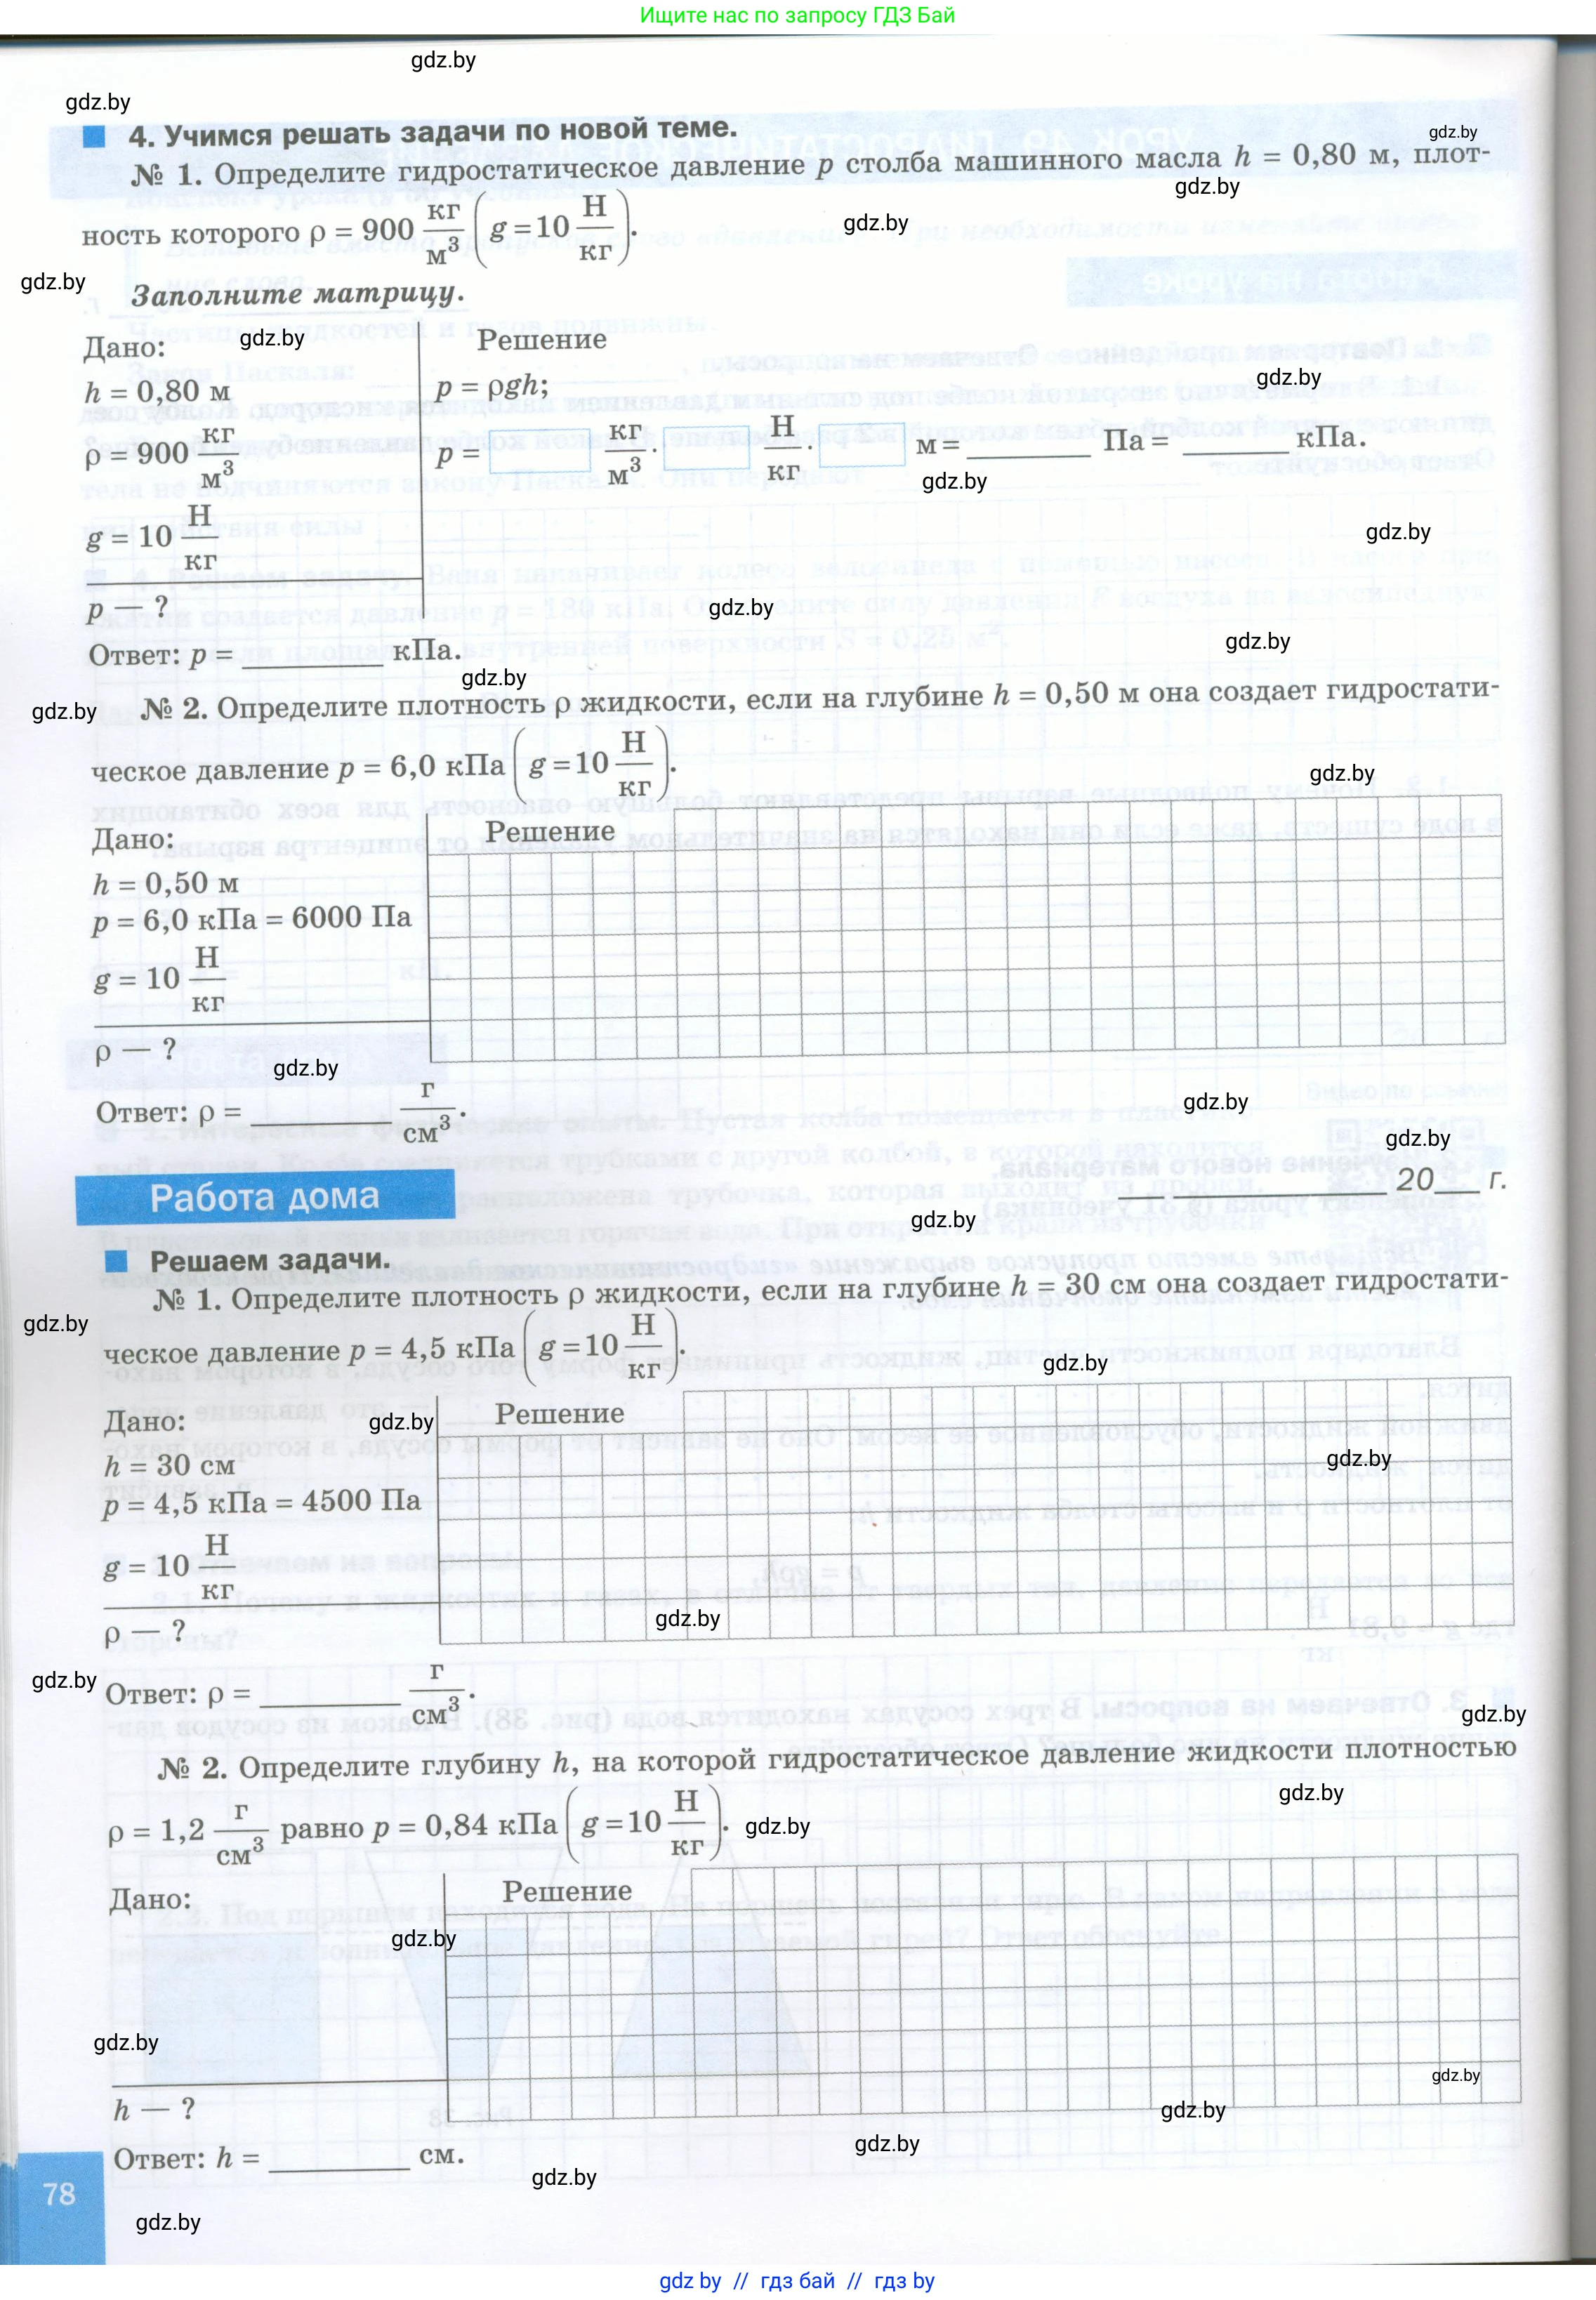 Ищите нас по запросу ГДЗ Бай
gdz.by
gdz.by
4. Учимся решать задачи по новой теме.
gdz.by
№ 1. Определите гидростатическое давление p столба машинного масла h = 0,80 м, плот-
gdz.by
ность которого ρ = 900 кг/м³ (g = 10 Н/кг).
gdz.by
gdz.by
Заполните матрицу.
Дано:
gdz.by
Решение
h = 0,80 м
p = ρgh;
gdz.by
ρ = 900 кг/м³
p = кг/м³ · Н/кг · м = ________ Па = ________ кПа.
gdz.by
g = 10 Н/кг
gdz.by
p — ?
gdz.by
Ответ: p = ________ кПа.
gdz.by
gdz.by
gdz.by
№ 2. Определите плотность ρ жидкости, если на глубине h = 0,50 м она создает гидростати-
ческое давление p = 6,0 кПа (g = 10 Н/кг).
gdz.by
Дано:
Решение
h = 0,50 м
p = 6,0 кПа = 6000 Па
g = 10 Н/кг
ρ — ?
gdz.by
Ответ: ρ = ________ г/см³.
gdz.by
gdz.by
Работа дома
________ 20__ г.
gdz.by
Решаем задачи.
№ 1. Определите плотность ρ жидкости, если на глубине h = 30 см она создает гидростати-
gdz.by
ческое давление p = 4,5 кПа (g = 10 Н/кг).
gdz.by
Дано:
gdz.by
Решение
h = 30 см
gdz.by
p = 4,5 кПа = 4500 Па
g = 10 Н/кг
ρ — ?
gdz.by
gdz.by
Ответ: ρ = ________ г/см³.
gdz.by
№ 2. Определите глубину h, на которой гидростатическое давление жидкости плотностью
gdz.by
ρ = 1,2 г/см³ равно p = 0,84 кПа (g = 10 Н/кг).
gdz.by
Дано:
Решение
gdz.by
gdz.by
gdz.by
h — ?
gdz.by
gdz.by
Ответ: h = ________ см.
gdz.by
78
gdz.by
gdz by // гдз бай // гдз by